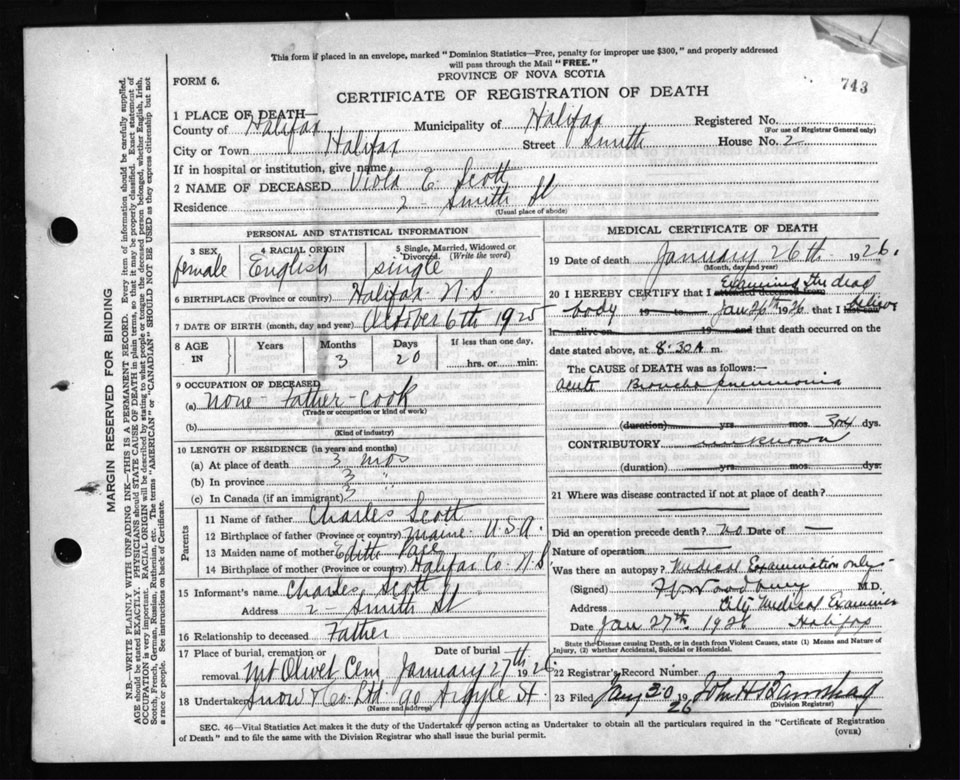 This form if placed in an envelope, marked "Dominion Statistics—Free, penalty for improper use $300," and properly addressed
will pass through the Mail "FREE."
PROVINCE OF NOVA SCOTIA
FORM 6.
743
CERTIFICATE OF REGISTRATION OF DEATH
1 PLACE OF DEATH—
County of Halifax Municipality of Halifax Registered No.
(For use of Registrar General only)
City or Town Halifax Street Smith House No. 2
If in hospital or institution, give name
2 NAME OF DECEASED Viola E. Scott
Residence 2 - Smith St
(Usual place of abode)
PERSONAL AND STATISTICAL INFORMATION
3 SEX 4 RACIAL ORIGIN 5 Single, Married, Widowed or Divorced. (Write the word)
female English single
6 BIRTHPLACE (Province or country) Halifax N.S.
7 DATE OF BIRTH (month, day and year) October 6th 1925
8 AGE IN Years Months Days If less than one day,
3 20 hrs. or min:
9 OCCUPATION OF DECEASED
(a) None - Father - Cook
(Trade or occupation or kind of work)
(b)
(Kind of industry)
10 LENGTH OF RESIDENCE (in years and months)
(a) At place of death 3 mos
(b) In province 3 "
(c) In Canada (if an immigrant) 3
Parents
11 Name of father Charles Scott
12 Birthplace of father (Province or country) Maine U.S.A.
13 Maiden name of mother Edith
14 Birthplace of mother (Province or country) Halifax Co. N.S
15 Informant's name Charles Scott
Address 2 - Smith St
16 Relationship to deceased Father
17 Place of burial, cremation or removal Date of burial
Mt Olivet Cem January 27th 1926
18 Undertaker Snow & Co Ltd 90 Argyle St.
(Name and address)
MEDICAL CERTIFICATE OF DEATH
19 Date of death January 26th 1926.
(Month, day and year)
20 I HEREBY CERTIFY that I attended deceased from Examined the dead
body 19 Jan 26th 1926 that I last saw believe
h alive on 19 and that death occurred on the
date stated above, at 8.30 A m.
The CAUSE OF DEATH was as follows:—
acute Broncho pneumonia
(duration) yrs. mos. 3 or 4 dys.
CONTRIBUTORY unknown
(duration) yrs. mos. dys.
21 Where was disease contracted if not at place of death?
Did an operation precede death? No Date of —
Nature of operation —
Was there an autopsy? Medical Examination only
(Signed) Woodbury M.D.
Address City Medical Examiner
Date Jan 27th 1926 Halifax
State the Disease causing Death, or in death from Violent Causes, state (1) Means and Nature of Injury, (2) whether Accidental, Suicidal or Homicidal.
22 Registrar's Record Number
23 Filed Jany 30 1926 John H
(Division Registrar)
SEC. 46—Vital Statistics Act makes it the duty of the Undertaker or person acting as Undertaker to obtain all the particulars required in the "Certificate of Registration
of Death" and to file the same with the Division Registrar who shall issue the burial permit.
(OVER)
MARGIN RESERVED FOR BINDING
N.B.—WRITE PLAINLY WITH UNFADING INK—THIS IS A PERMANENT RECORD. Every item of information should be carefully supplied.
AGE should be stated EXACTLY. PHYSICIANS should STATE CAUSE OF DEATH in plain terms, so that it may be properly classified. Exact statement of
OCCUPATION is very important. RACIAL ORIGIN will be described by stating to what people or tongue the deceased person belonged, whether English, Irish,
Scotch, French, German, Russian, Ruthenian, etc. The terms "AMERICAN" or "CANADIAN" SHOULD NOT BE USED as they express citizenship but not
a race or people. See instructions on back of Certificate.